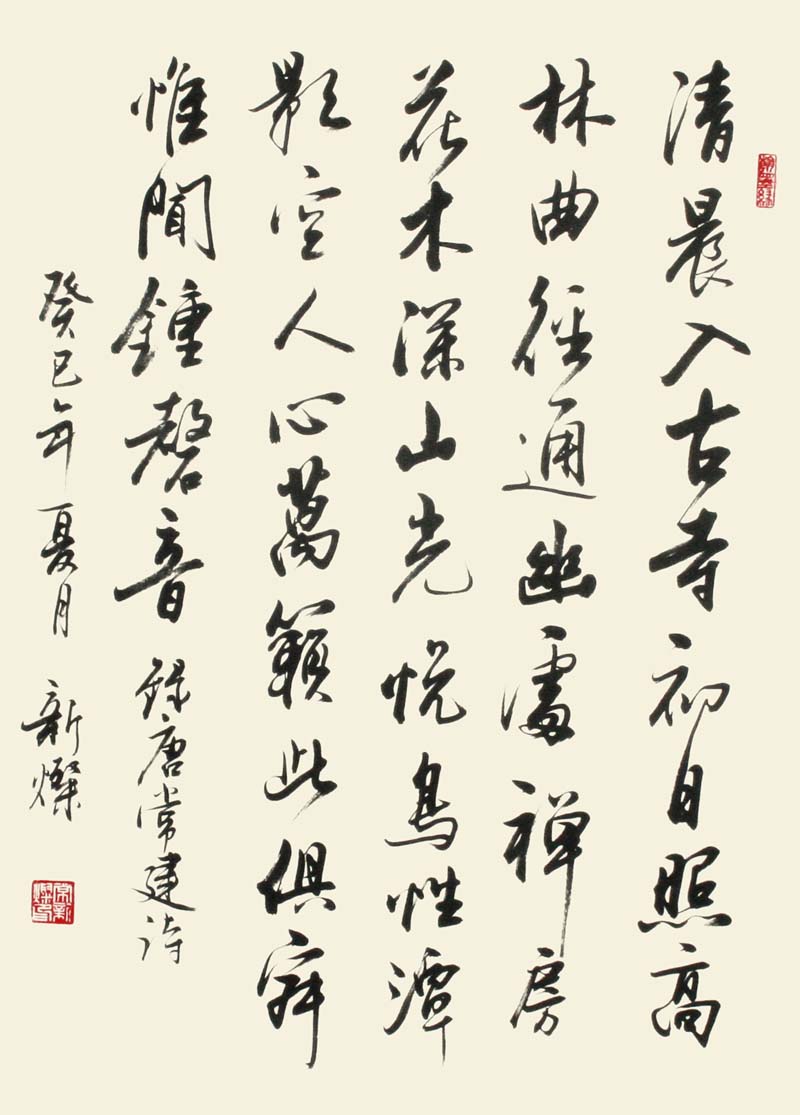 清晨入古寺初日照高
林曲径通幽處禅房
花木深山光悦鳥性潭
影空人心萬籟此俱寂
惟聞鍾磬音 錄唐常建詩
癸巳年夏月 新燦